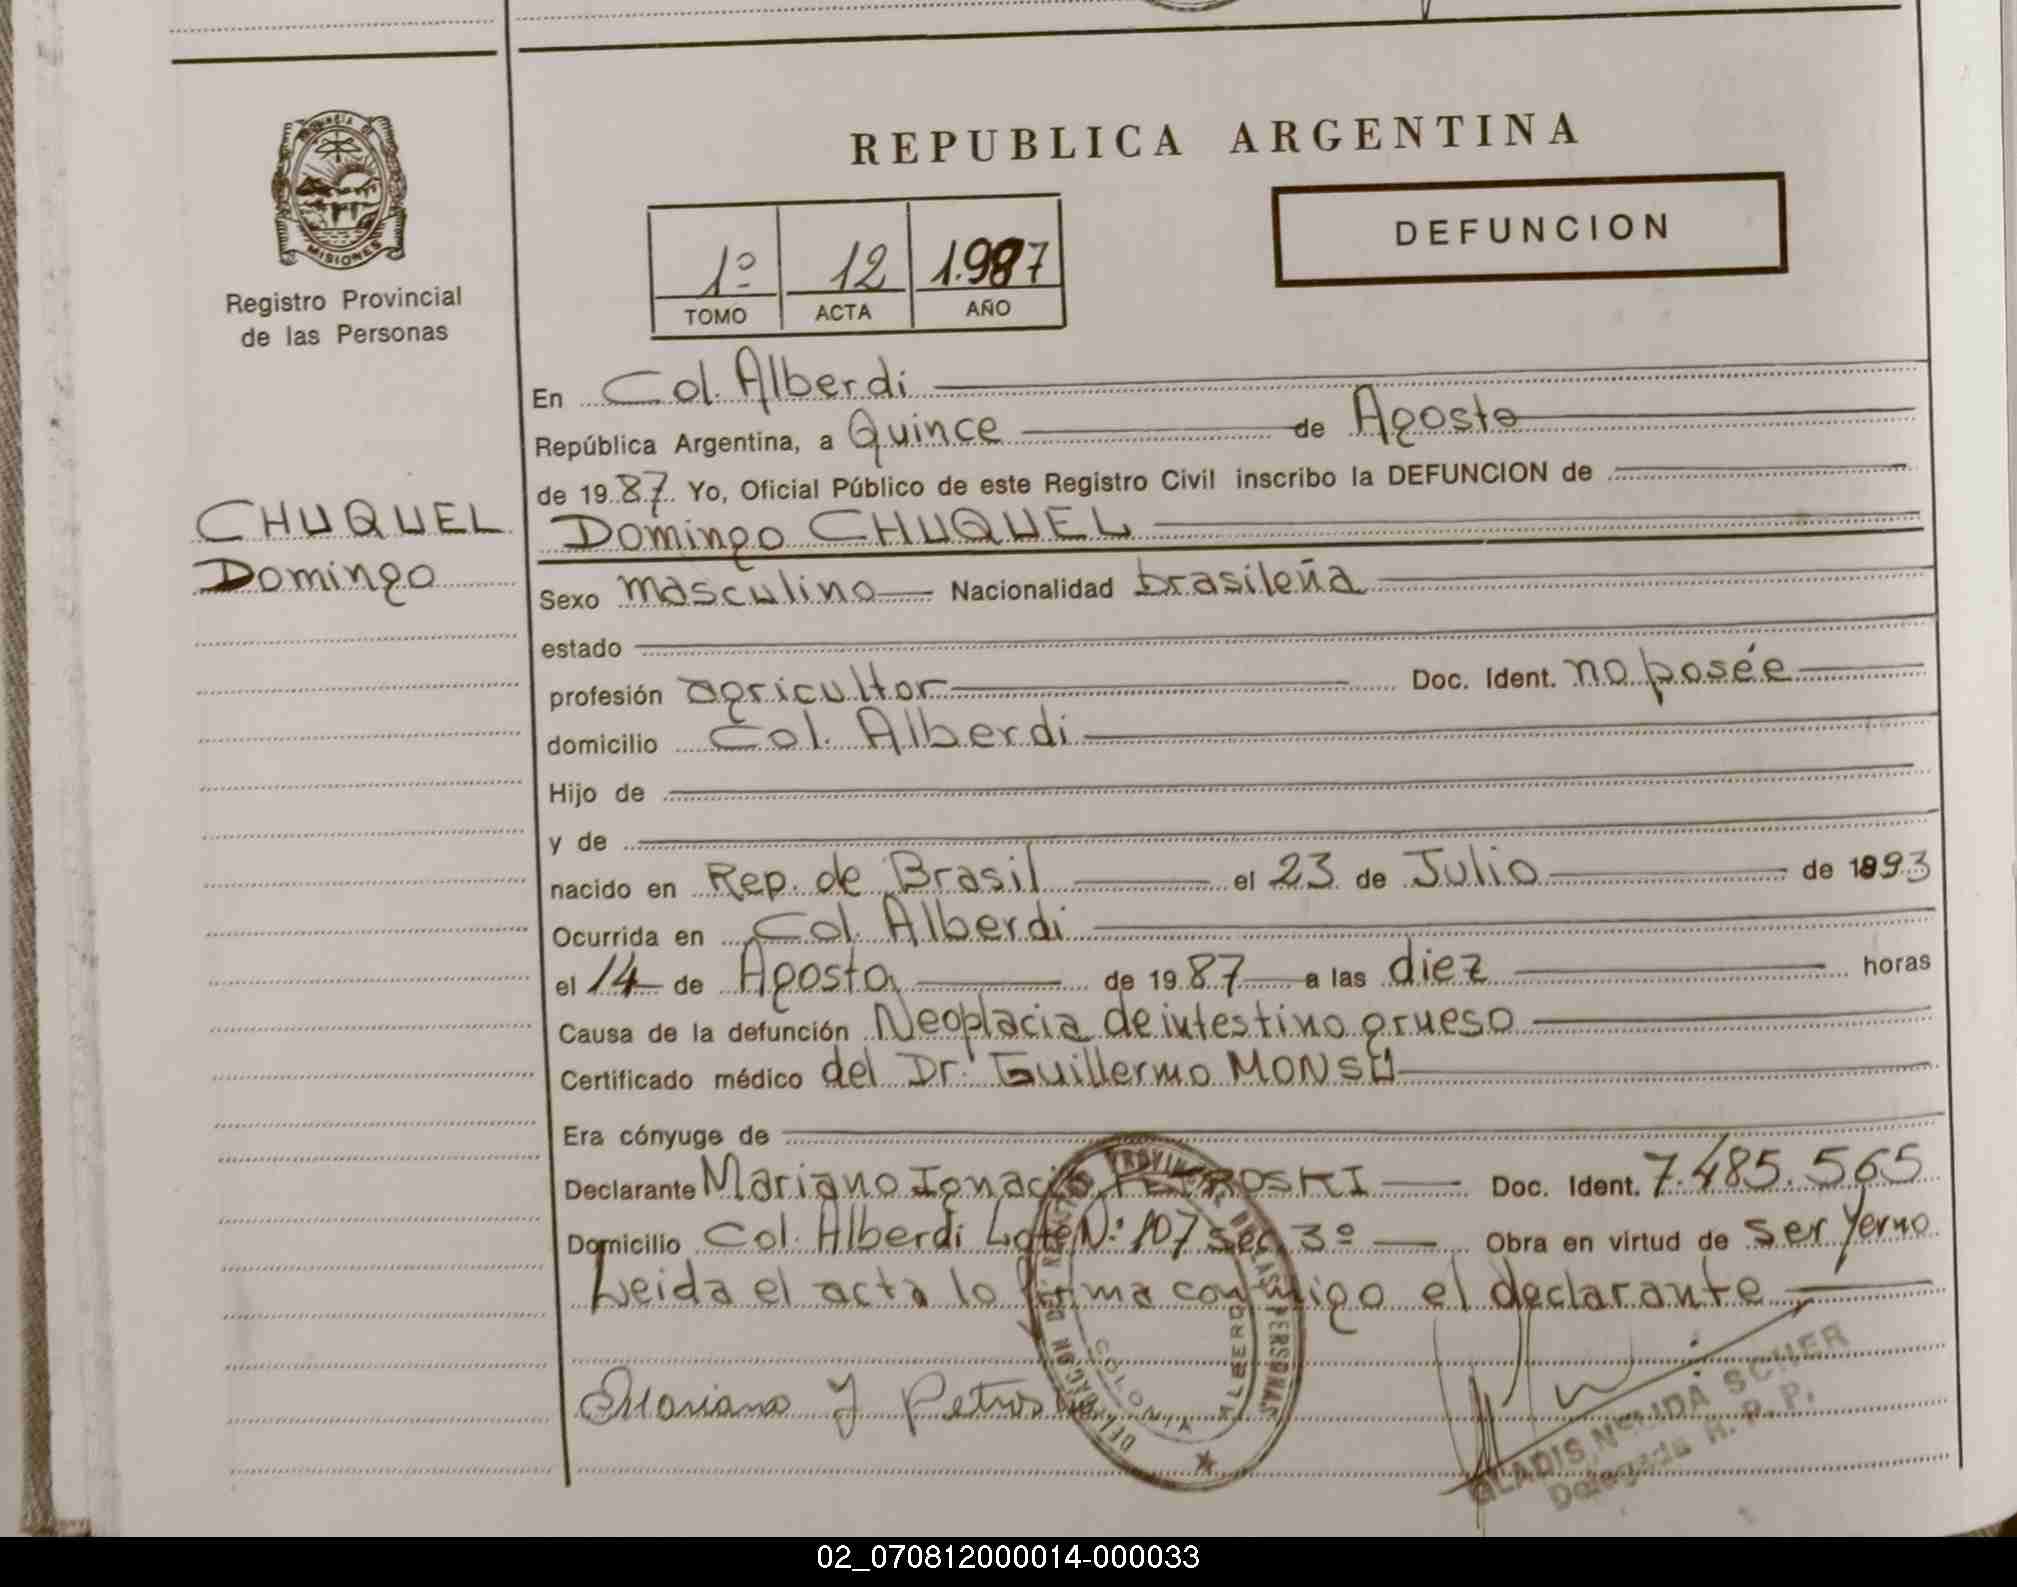 REPUBLICA ARGENTINA
Provincia de
MISIONES
Registro Provincial
de las Personas
DEFUNCION
1º 12 1.987
TOMO ACTA AÑO
En Col. Alberdi
República Argentina, a Quince de Agosto
de 1987 Yo, Oficial Público de este Registro Civil inscribo la DEFUNCION de
CHUQUEL
Domingo
Domingo CHUQUEL
Sexo masculino Nacionalidad brasileña
estado
profesión agricultor Doc. Ident. no posée
domicilio Col. Alberdi
Hijo de
y de
nacido en Rep. de Brasil el 23 de Julio de 1893
Ocurrida en Col. Alberdi
el 14 de Agosto de 1987 a las diez horas
Causa de la defunción Neoplacia de intestino grueso
Certificado médico del Dr. Guillermo
Era cónyuge de
Declarante Mariano Ignacio PETROSKI Doc. Ident. 7.485.565
Domicilio Col. Alberdi Lote Nº 107 sec. 3º Obra en virtud de ser yerno
Leida el acta lo firma conmigo el declarante
Mariano I Petroski
DELEGACION DEL REGISTRO PROVINCIAL DE LAS PERSONAS
COLONIA ALBERDI
GLADIS NELIDA SCHER
Delegada R. P. P.
02_070812000014-000033